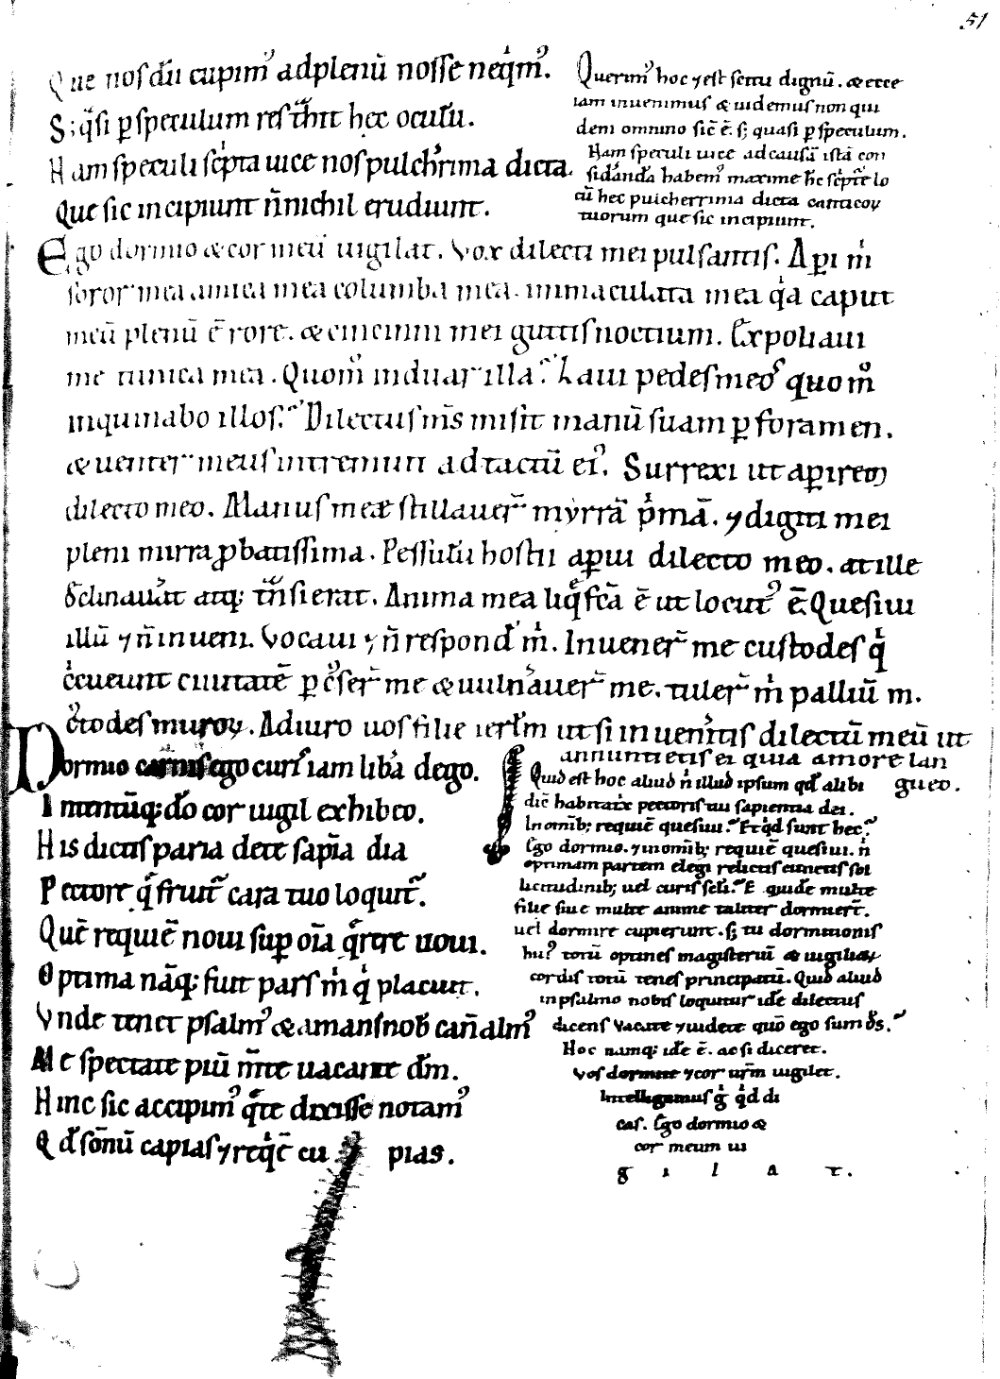 51
Que nos dũ cupim⁹ ad plenũ nosse neq̇m⁹.
S; q̃si p̱ speculum res tr̃sit hęc oculũ.
Nam speculi sc̃pta uice nos pulcħrima dicta.
Que sic incipiunt ñ nichil erudiunt.
Querim⁹ hoc ⁊ est sensu dignũ. & ecce
iam inuenimus & uidemus non qui
dem omnino sic̃ ẽ. s; quasi p̱ speculum.
Nam speculi uice ad causã istã con
sid̾and̃a habem⁹ maxime
cũ hec pulcherrima dicta canticoꝝ
tuorum que sic incipiunt.
Ego dormio & cor meũ uigilat. Vox dilecti mei pulsantis. Ap̱i m̍
soror mea amica mea columba mea. immaculata mea q̍a caput
meũ plenũ ẽ rore. & cincinni mei guttis noctium. Expoliaui
me tunica mea. Quom̊ induar illa? Laui pedes meos quo m̊
inquinabo illos? Dilectus m̃s misit manũ suam p̱ foramen.
& uenter meus intremuit ad tactũ ei⁹. Surrexi ut ap̱irem
dilecto meo. Manus meæ stillauer̃ myrrã p̍mã. ⁊ digiti mei
pleni mirra ꝓbatissima. Pessulũ hostii ap̱ui dilecto meo. at ille
declinau̾at atq; tr̃sierat. Anima mea liq̃fcã ẽ ut locut⁹ ẽ. Quesiui
illũ ⁊ ñ inueni. Vocaui ⁊ ñ respond̾ m̍. Inuener̃ me custodes q̍
c̍cueunt ciuitatẽ p̱c̃ser̃ me & uuln̾auer̃ me. tuler̃ m̍ palliũ m.
c̾todes muroꝝ. Adiuro uos filie ierl̃m ut si inuen̾itis dilectũ meũ ut
annuntietis ei quia amore lan
gueo.
Dormio carnis ego curis iam lib̾a dego.
Intentũq; dõ cor uigil exhibeo.
His dictis paria dece sapĩa dia
Pectore q̍ fruit̃ cara tuo loquit̃.
Quẽ requiẽ noui sup̱ oĩa q̃rere uoui.
Optima nãq; fuit pars m̍ q̍ placuit.
Vnde tenet psalm⁹ & amans nob̾ cañ almⁱ
Me spectate piũ m̃te uacante dm̃.
Hinc sic accipim⁹ q̃te dixisse notam⁹
Qd̾ som̃nũ capias ⁊ req̍ẽ cu pias.
Quid est hoc aliud ñ illud ipsum qd̾ alibi
dic̃ habitat̃x pectoris tui sapientia dei.
In omĩb; requiẽ quesiui? Et q̍d sunt hec?
Ego dormio. ⁊ in om̃ib; requiẽ quesiui. ñ
optimam partem elegi relictis cunctis sol
licitudinib; uel curis sc̃li? E quidẽ multe
filie siue multe anime taliter dormier̃t.
uel dormire cupierunt. s; tu dormitionis
hui⁹ totũ optines magisteriũ & uigiliaꝝ
cordis totũ tenes principatũ. Quid aliud
in psalmo nobis loquitur idẽ dilectus
dicens Vacate ⁊ uidete quõ ego sum d̃s?
Hoc namq; idẽ ẽ. ac si diceret.
Vos dormite ⁊ cor ur̃m uigilet.
Intelligamus g̍ q̍d di
cas. Ego dormio &
cor meum ui
g i l a t.